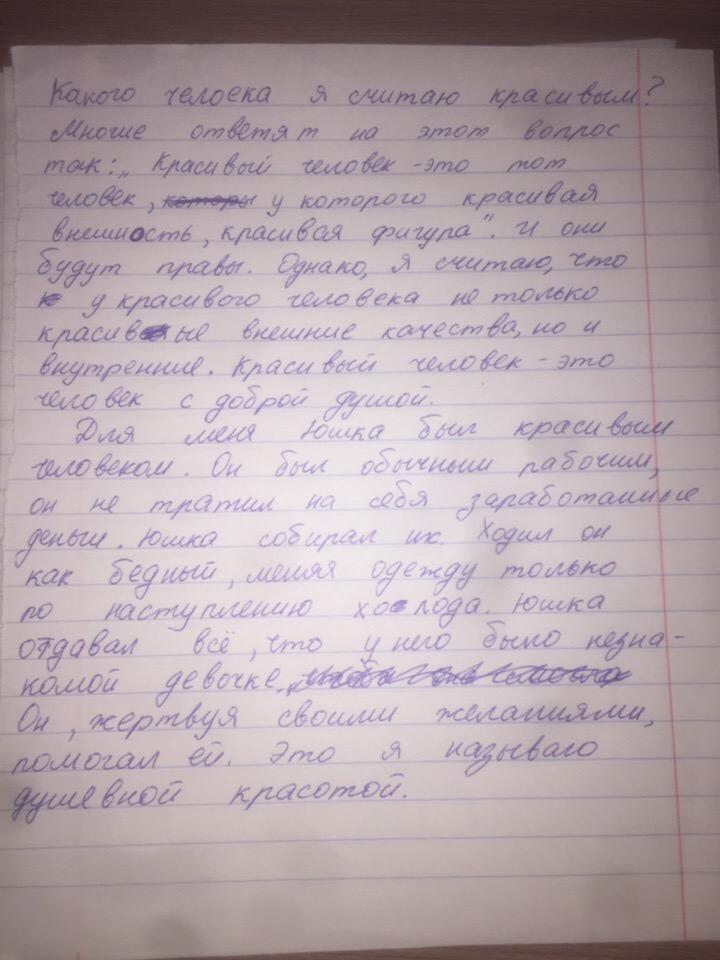 Какого челоека я считаю красивым?
Многие ответят на этот вопрос
так: „Красивый человек - это тот
человек, которы у которого красивая
внешность, красивая фигура". И они
будут правы. Однако, я считаю, что
у красивого человека не только
красивые внешние качества, но и
внутренние. Красивый человек - это
человек с доброй душой.
Для меня Юшка был красивым
человеком. Он был обычным рабочим,
он не тратил на себя заработанные
деньги. Юшка собирал их. Ходил он
как бедный, меняя одежду только
по наступлению холода. Юшка
отдавал всё, что у него было незна-
комой девочке.
Он, жертвуя своими желаниями,
помогал ей. Это я называю
душевной красотой.